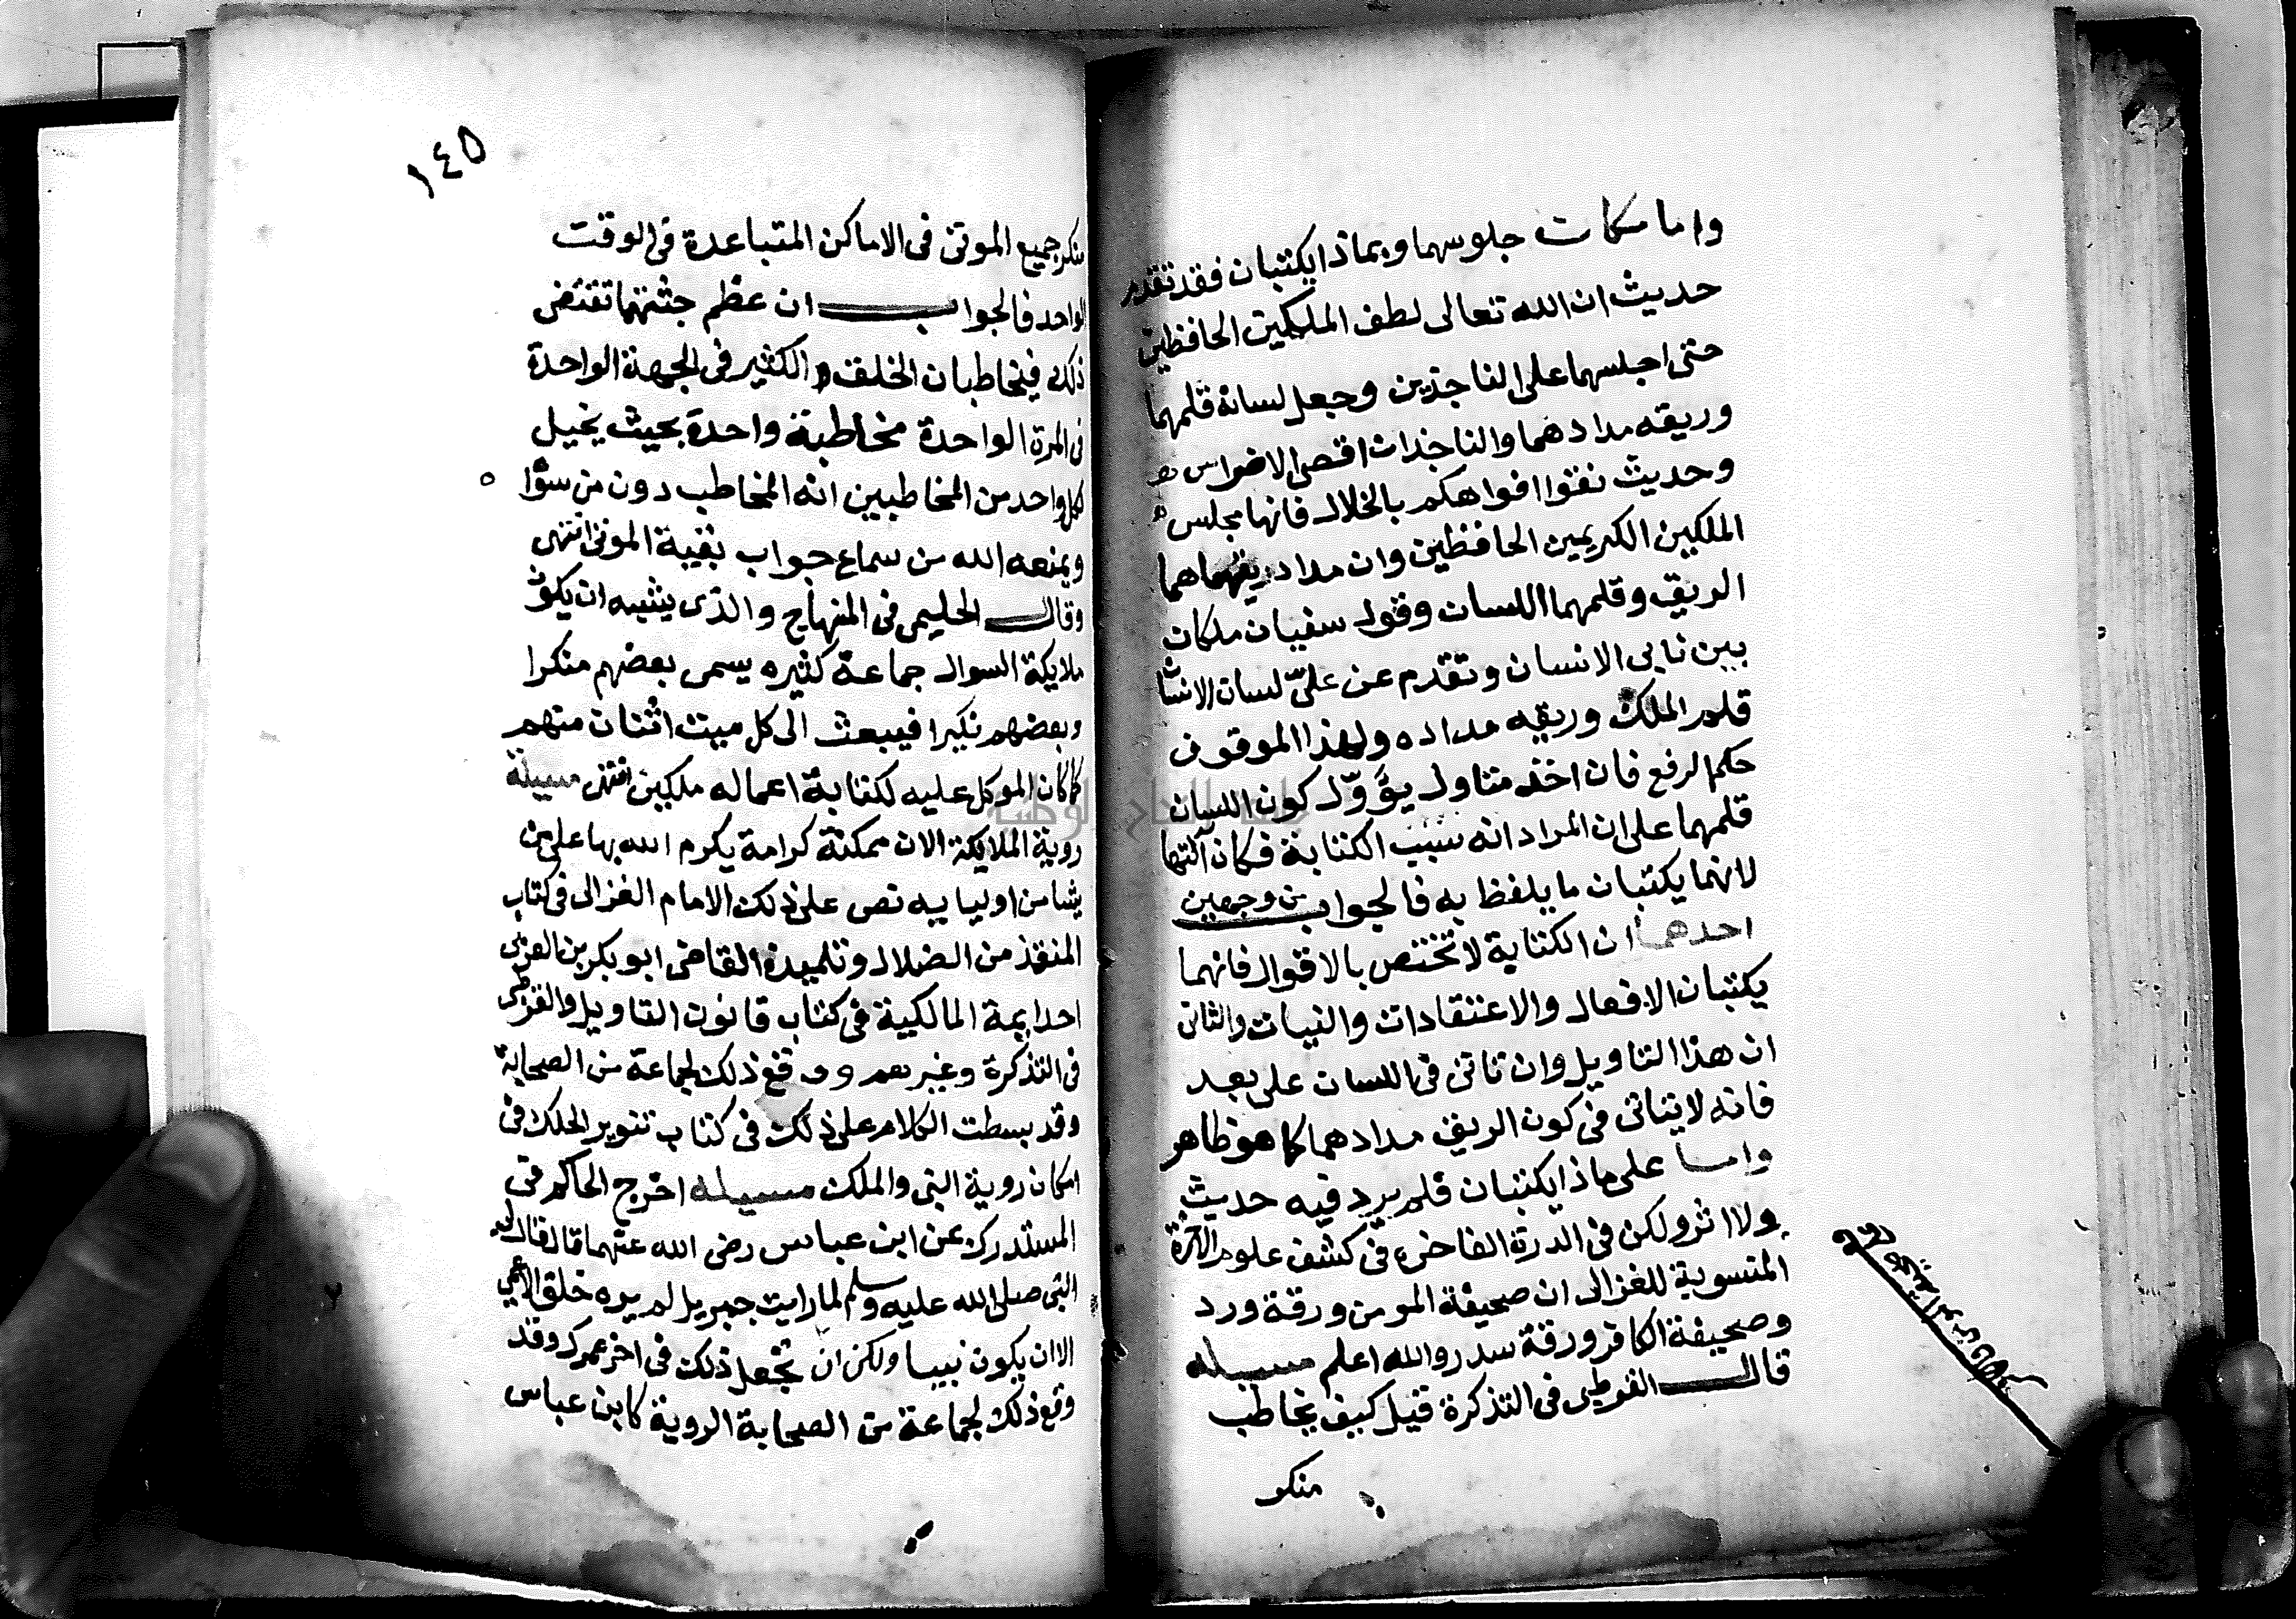 واما مكان جلوسهما وبماذا يكتبان فقد تقدم
حديث ان الله تعالى لطف الملكين الحافظين
حتى اجلسهما على الناجذين وجعل لسانه قلمهما
وريقه مدادهما والناجذان اقصى الاضراس
وحديث نقوا افواهكم بالخلال فانها مجلس
الملكين الكريمين الحافظين وان مداد هما
الريق وقلمهما اللسان وقول سفيان ملكان
بين نابى الانسان وتقدم عن على لسان الانسان
قلم الملك وريقه مداده ولهذا الموقوف
حكم الرفع فان اخذ متناول يؤول كون اللسان
قلمهما على ان المراد انه سبب الكتابة فكان آلتها
لانهما يكتبان ما يلفظ به فالجواب من وجهين
احدهما ان الكتابة لا تختص بالاقوال فانهما
يكتبان الافعال والاعتقادات والنيات والثانى
ان هذا التاويل وان تاتى فى اللسان على بعد
فانه لا يتاتى فى كون الريق مدادهما كما هو ظاهر
واما على ماذا يكتبان فلم يرد فيه حديث
ولا اثر ولكن فى الدرة الفاخرة فى كشف علوم الآخرة
المنسوبة للغزالى ان صحيفة المومن ورقة ورد
وصحيفة الكافر ورقة سدر والله اعلم مسيله
قال القرطبى فى التذكرة قيل كيف يخاطب
منكر
١٤٥
منكر جميع الموتى فى الاماكن المتباعدة فى الوقت
الواحد فالجواب ان عظم جثتهما تقتضى
ذلك فيخاطبان الخلق الكثير فى الجهة الواحدة
فى المرة الواحدة مخاطبة واحدة بحيث يخيل
لكل واحد من المخاطبين انه المخاطب دون من سواه
ويمنعه الله من سماع جواب بقية الموتى انتهى
وقال الحليمى فى المنهاج والذى يشبه ان يكون
ملايكة السوال جماعة كثيره يسمى بعضهم منكرا
وبعضهم نكيرا فيبعث الى كل ميت اثنان منهم
كما كان الموكل عليه لكتابة اعماله ملكين انتهى مسيلة
روية الملايكة الان ممكنة كرامة يكرم الله بها على من
يشا من اوليايه نص على ذلك الامام الغزالى فى كتاب
المنقذ من الضلال وتلميذه القاضى ابو بكر بن العربى
احد ايمة المالكية فى كتاب قانون التاويل والقرطبى
فى التذكرة وغيرهم ووقع ذلك لجماعة من الصحابة
وقد بسطت الكلام على ذلك فى كتاب تنوير الحلك فى
امكان روية النبى والملك مسيله اخرج الحاكم فى
المستدرك عن ابن عباس رضى الله عنهما قال قال لى
النبى صلى الله عليه وسلم لما رايت جبريل لم يره خلق الا عمى
الا ان يكون نبيا ولكن ان تجعل ذلك فى اخر عمرك وقد
وقع ذلك لجماعة من الصحابة الروية كابن عباس